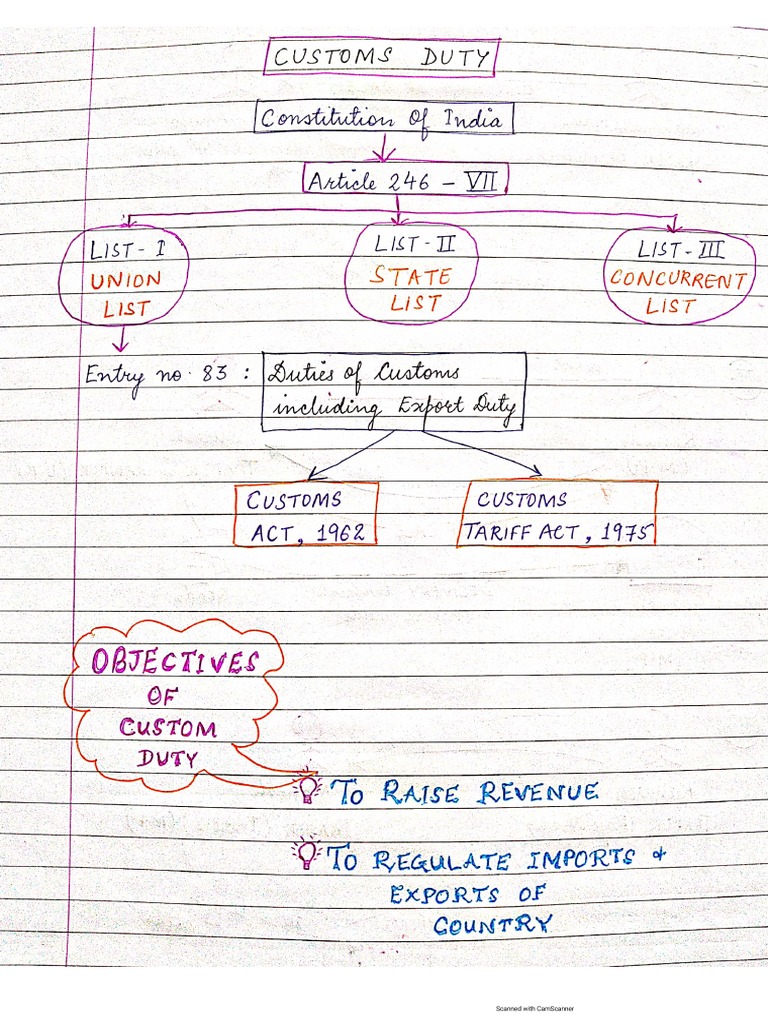 CUSTOMS DUTY
Constitution of India
Article 246 - VII
LIST - I
UNION
LIST
LIST - II
STATE
LIST
LIST - III
CONCURRENT
LIST
Entry no. 83 :
Duties of Customs
including Export Duty
CUSTOMS
ACT, 1962
CUSTOMS
TARIFF ACT, 1975
OBJECTIVES
OF
CUSTOM
DUTY
TO RAISE REVENUE
TO REGULATE IMPORTS &
EXPORTS OF
COUNTRY
Scanned with CamScanner